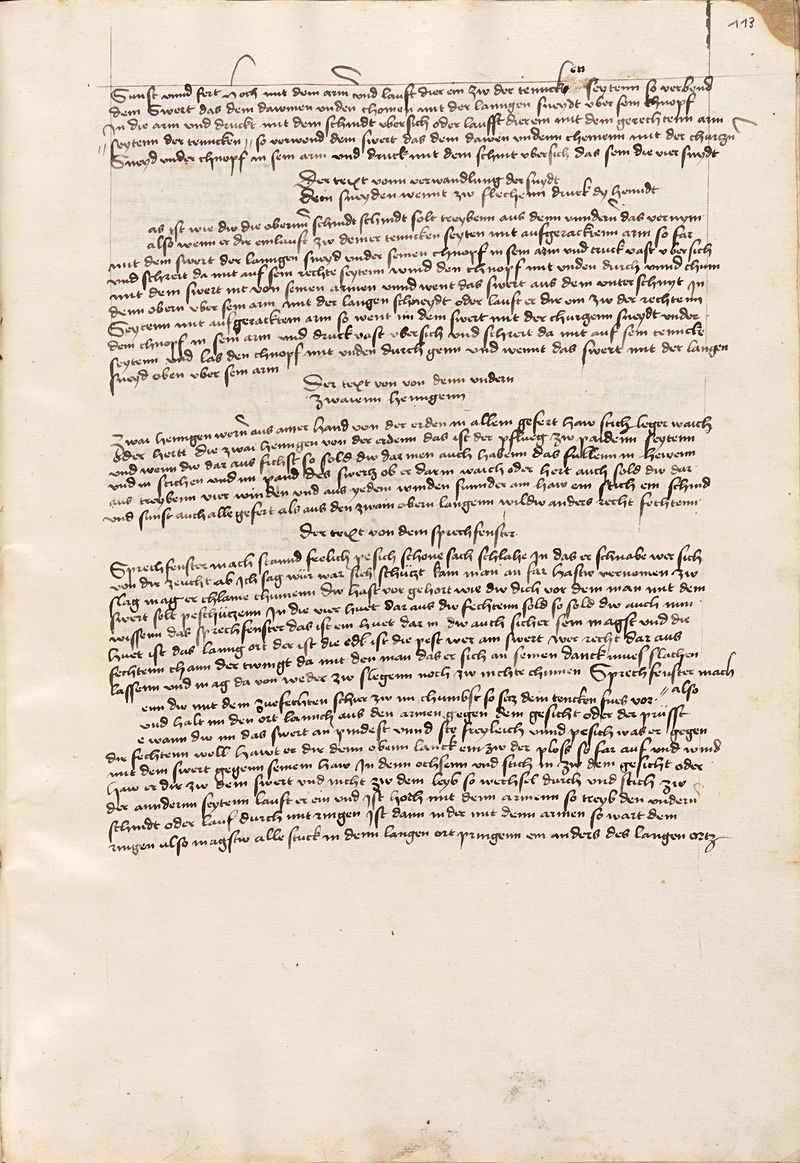 113
Sunst vnnd fert hoch mit dem arm vnd lauft dier ein zw der tencken seytenn so verbend
dem swert das dein dawmen vnden chomen mit der lanngen sneydt vber sein chnopf
In die arm vnd druckt mit dem schnidt vbersich oder laufft dier ein mit dem gerechtenn arm
seytenn der tenncken so verwend dein swert das dein dawen vndenn chemenn mit der churczn
Sneyd vnder chnopf in sein arm vnd druck mit dem schnit vbersich das sein die vier snydt
Der text vonn verwandlung der snydt
Dein sneyden wennt zw flechenn druck dy henndt
as ist wie dw die obernn schnidt schnidt solt treybenn aus denn vnndernn das vernym
also wenn er dir einlauft zw deiner tenncken seyten mit aufgeracktenn arm so far
mit dem swert der lanngen sneyd vnder seinen chnopf in sein arm vnd truck vast vbersich
vnd schreit da mit auf sein rechte seytenn wind den chnopf mit vnden durch vnnd chum
mit dem swert nit von seinen armen vnnd went das swert aus dem vnterschnyt In
denn obern vber sein arm mit der langen schneydt oder lauft er dir ein zw der rechtenn
Seytenn mit aufgeracktem arm so went im dein swert mit der churzenn sneydt vnder
dem chnopf in sein arm vnd druck vast vbersich vnd schreit da mit auf sein tencke
seytenn vnd las den chnopf mit vnden durch genn vnd wennt das swert mit der langen
sneyd oben vber sein arm
Der text von von denn vndern
zwaienn henngenn
Zwai henngen wernn aus ainer hand von der erden in allem gefert haw stich leger waich
oder hertt die zwai henngen von der erdenn das ist der pflueg zw paidenn seytenn
vnd wenn dw dar aus fichst so sold dw dar inen auch habenn das fullenn in hewenn
vnd in stichen vnd im pand des swerz ob er dar in waich oder hert auch sold dw dar
aus treybenn vier winden vnd aus yedem winden sunnder ain haw ein stich ein schnid
vnd sunst auch alle gefert als aus den zwain obern langenn wildw anders recht fechtenn
Der text von dem sprechfenster
Sprechfenster mach stannd freilich pesich schone sach schlahe In das er schnabe wer sich
von dir zeucht ab Ich sag wür war sich schützt kain man an far hastw vernomen zw
slag mag er chlaine chumenn dw hast vor gehort wie dw dich vor dem man mit dem
swert solt peschützenn In die vier huet dar aus dw fechtenn sold so sold dw auch nun
wissenn das sprechfenster das ist ein huet dar in dw auch sicher sein magst vnd die
huet ist das lanng ort der ist die edl ist die pest wer am swert wer recht dar aus
fechtenn chann der twingt da mit den man das er sich an seinen danck mues slachen
lassenn vnd mag da von weder zw slegenn noch zw nichte chumen Sprechfenster mach
also
enn dw mit dem zuefechten schier zw im chumbst so secz dein tencken fues vor
vnd halt im den ort lannck aus den armen gegen dem gesicht oder der prusst
e wann dw im das swert an pindest vnnd ste freyleich vnnd pesich was er gegen
dir fechtenn well hawt er dir denn obenn lanck ein zw der plos so far auf vnd wind
mit dem swert gegenn seinem haw In denn ochsenn vnd stich im zw dem gesicht oder
haw er dir zw dem swert vnd nicht zw dem leyb so wechsel durch vnd stich zw
der anndernn seytenn lauft er ein vnd Ist hoch mit denn armenn so treyb den vndern
schnidt oder lauf durch mit ringen Ist dann nider mit denn armen so wart dem
ringen also magstw alle stuck in denn langen ort pringenn ein anders des langen ortz